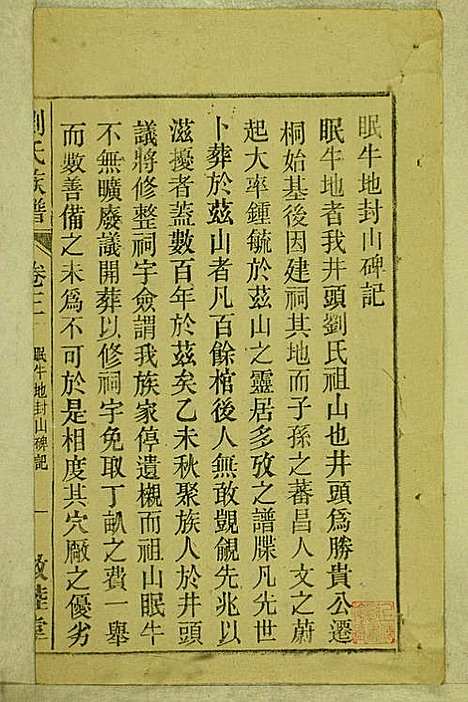 眠牛地封山碑記
眠牛地者我井頭劉氏祖山也井頭爲勝貴公遷
桐始基後因建祠其地而子孫之蕃昌人文之蔚
起大率鍾毓於茲山之靈居多攷之譜牒凡先世
卜葬於茲山者凡百餘棺後人無敢覬覦先兆以
滋擾者蓋數百年於茲矣乙未秋聚族人於井頭
議將修整祠宇僉謂我族家停遺櫬而祖山眠牛
不無曠廢議開葬以修祠宇免取丁畝之費一舉
而數善備之未爲不可於是相度其穴厰之優劣
劉氏族譜
卷三
眠牛地封山碑記
一
敦睦堂